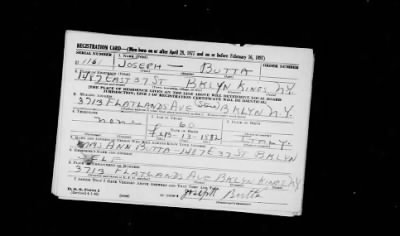 REGISTRATION CARD—(Men born on or after April 28, 1877 and on or before February 16, 1897)
SERIAL NUMBER 1. NAME (Print) ORDER NUMBER
U 1161 JOSEPH — BUTTA
1487 EAST 37 ST BKLYN KINGS N.Y.
[THE PLACE OF RESIDENCE GIVEN ON THE LINE ABOVE WILL DETERMINE LOCAL BOARD
JURISDICTION; LINE 2 OF REGISTRATION CERTIFICATE WILL BE IDENTICAL]
3. MAILING ADDRESS
3713 FLATLANDS AVE BKLYN N.Y.
4. TELEPHONE
none 60 ITALY
FEB-13-1882
MRS ANN BUTTA 1487 E 37 ST BKLYN
SELF
3713 FLATLANDS AVE BKLYN KINGS N.Y.
I AFFIRM THAT I HAVE VERIFIED ABOVE ANSWERS AND THAT THEY ARE TRUE.
D. S. S. Form 1
Joseph Butta